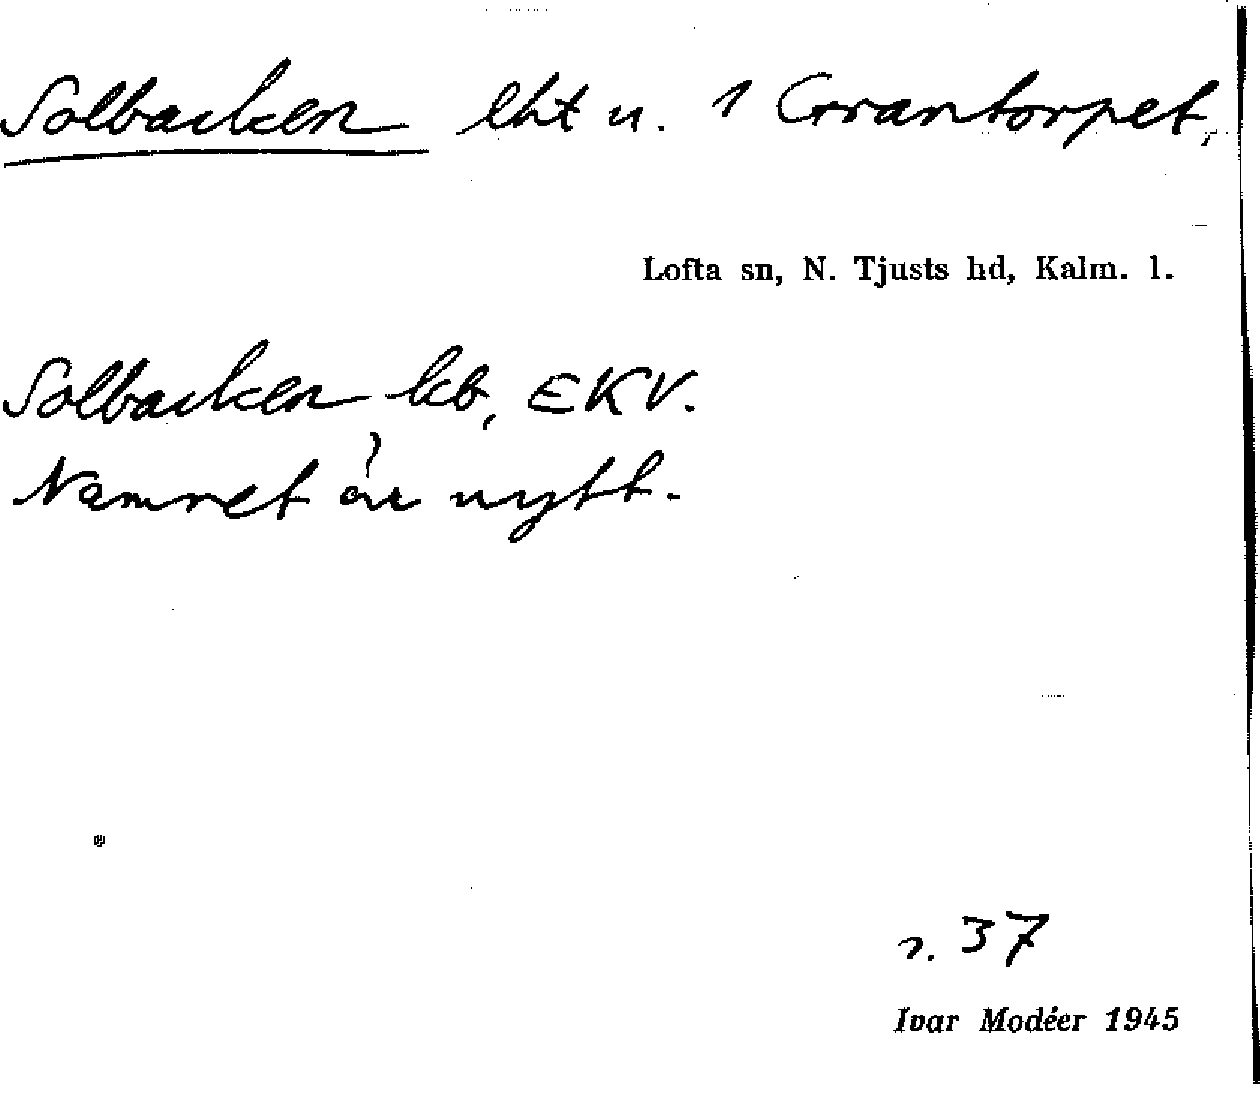 Solbacken lht u. 1 Grantorpet,
Lofta sn, N. Tjusts hd, Kalm. l.
Solbacken kb, EKV.
Namnet är nytt.
s. 37
Ivar Modéer 1945